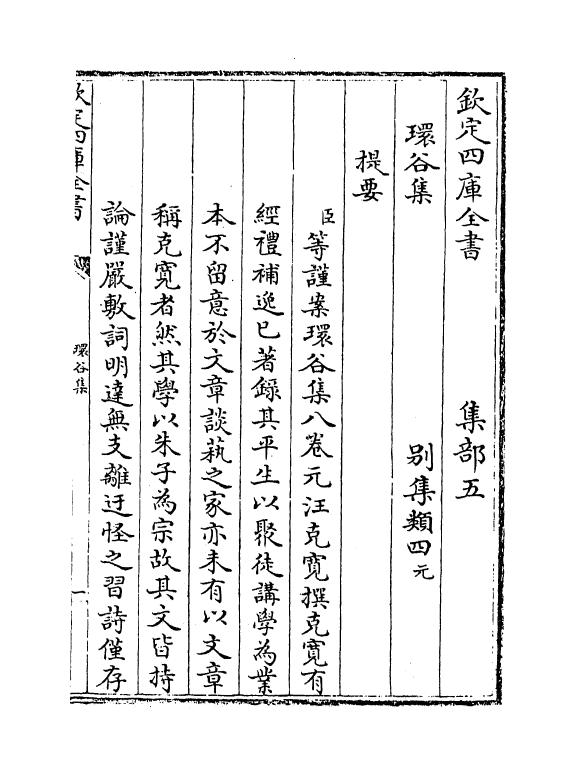 欽定四庫全書　集部五
環谷集　別集類四元
提要
臣等謹案環谷集八卷元汪克寬撰克寬有
經禮補逸已著錄其平生以聚徒講學為業
本不留意於文章談蓺之家亦未有以文章
稱克寬者然其學以朱子為宗故其文皆持
論謹嚴敷詞明達無支離迂怪之習詩僅存
欽定四庫全書
環谷集
一